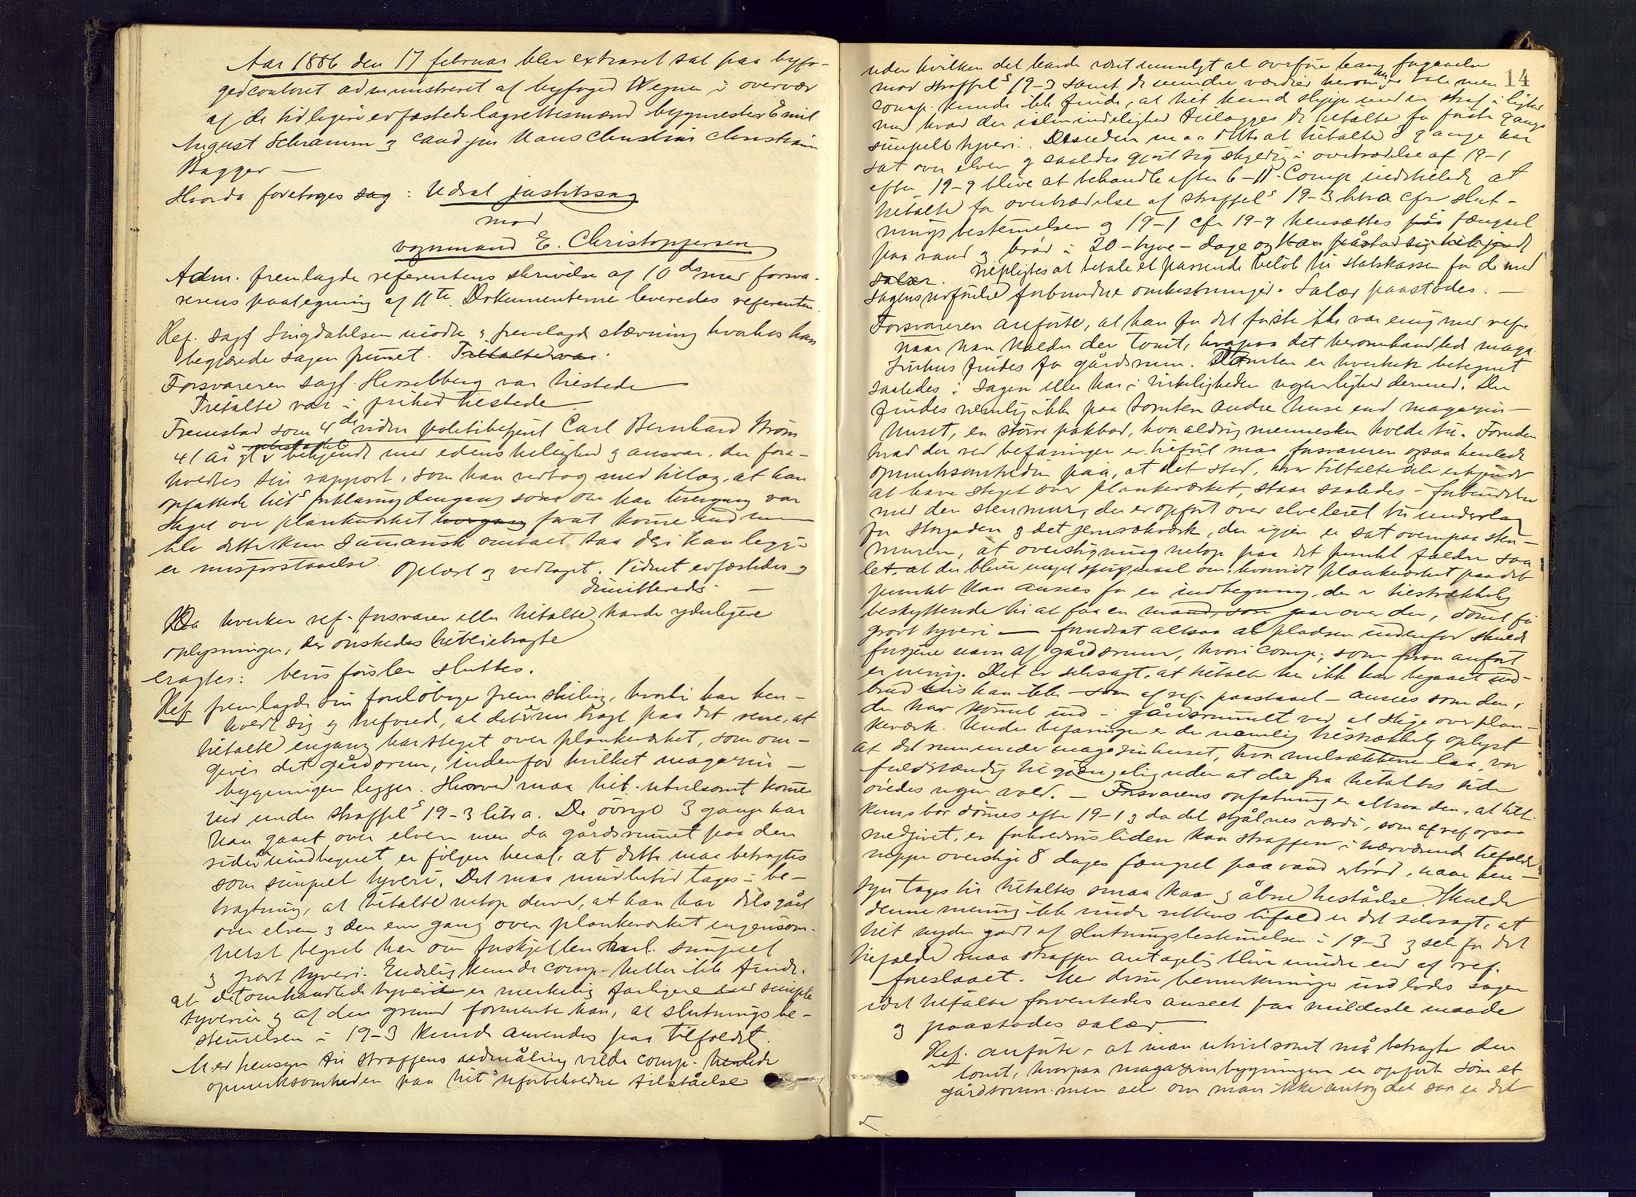 Aar 1886 den 17 februar blev extraret sat paa byfo-
gedcontoret administreret af byfoged Wegner i overvær
af de tidligere edfæstede lagrettesmænd bygmester Emil
August Schramm og cand jur Hans Christian Christian
Bagger —
Hvorda foretoges sag: Udsat justitssag
mod
vognmand E. Christophersen
Adm. fremlagde referentens skrivelse af 10 ds med forsva-
rerens paategning af 11te. Dokumenterne leveredes referenten.
Ref. sagf Lingdahlsen mødte og fremlagde stævning hvorhos han
begjærede sagen fremmet. Tiltalte var.
Forsvareren sagf Hesselberg var tilstede
Tiltalte var i frihed tilstede
Fremstod som 4de vidne politibetjent Carl Bernhard Strøm
41 år gl betjent med edens hellighed og ansvar. der fore-
holdtes sin rapport, som han vedtog med tillæg, at han
opfattede tilts forklaring dengang som om han engang var
steget over plankeværket for at komme ind men
blev dette kun summarisk omtalt saa der kan ligge
en misforstaaelse. Oplæst og vedtaget. Vidnet edfæstedes og
dimitteredes —
Da hverken ref. forsvarer eller tiltalte havde yderligere
oplysninger, der ønskedes tilveiebragte
eragtes: bevisførslen sluttes.
Ref fremlagde sin foreløbige fremstilling, hvortil han hen-
holdt sig og anførte, at det var bragt paa det rene, at
tiltalte engang har steget over plankeværket, som om-
giver det gårdsrum, indenfor hvilket magazin-
bygningen ligger. Herved maa tilt. utvilsomt komme
ind under straffels 19-3 litr a. De øvrige 3 gange har
han gaaet over elven men da gårdsrummet paa den
side er uindhegnet, er følgen heraf, at dette maa betragtes
som simpelt tyveri. Det maa imidlertid tages i be-
tragtning, at tiltalte netop derved, at han har dels gået
over elven og den ene gang over plankeværket ingensom-
helst begreb har om forskjellen ml. simpelt
og grovt tyveri. Endelig kunde comp. heller ikke finde,
at det omhandlede tyveri er merkelig farligere end simple
tyverier og af den grund formente han, at slutningsbe-
stemmelsen i 19-3 kunde anvendes paa tilfældet.
Med hensyn til straffens udmåling vilde comp. henlede
opmerksomheden paa tilts uforbeholdne tilståelse
14
uden hvilken det havde været umuligt at overføre ham forgaaelse
mod straffels 19-3 samt de mindre værdier hvorom tale men
comp. kunde ikke finde, at tilt kunde slippe med en straf i lighed
med hvad der i almindelighed tillægges de tiltalte for første gangs
simpelt tyveri. Desuden maa tilts at tiltalte 3 gange har
sat over elven og saaledes gjort sig skyldig i overtrædelse af 19-1
efter 19-9 blive at behandle efter 6-11. Comp indstillede, at
tiltalte for overtrædelse af straffels 19-3 litra a cfr slut-
ningsbestemmelsen og 19-1 cfr 19-9 hensættes i fængsel
paa vand og brød i 20-tyve-dage og
salær. tilpligtes at betale et passende beløb til statskassen for de med
sagens udførelse forbundne omkostninger. Salær paastodes. —
Forsvareren anførte, at han for det første ikke var enig med ref.
naar han kalder den tomt, hvorpaa det heromhandlede maga-
zinhus findes for gårdsrum. Tomten er hverken betegnet
saaledes i sagen eller har i virkeligheden nogen lighed dermed. Der
findes nemlig ikke paa tomten andre huse end magazin-
huset, en større pakbod, hvor aldrig mennesker holde til. Foruden
hvad der ved befaringen er tilført maa forsvareren ogsaa henlede
opmerksomheden paa, at det sted, hvor tiltalte alene erkjender
at have steget over plankeværket, staar saaledes i forbindelse
med den stenmur, der er opført over elveleiet til underlag
for Storgaden og det jernrækværk, der igjen er sat ovenpaa sten-
muren, at overstigning netop paa det punkt falder saa
let, at der bliver noget spørgsmaal om, hvorvidt plankeværket paa det
punkt kan ansees for en indhegning, der er tilstrækkelig
beskyttende til at faa en mand, som gaar over den, dømt for
grovt tyveri — forudsat altsaa at pladsen indenfor skulde
fortjene navn af gårdsrum, hvori comp. som foran anført
er uenig. Det er selvsagt, at tiltalte her ikke har begaaet ind-
brud hvis han ikke — som af ref. paastaaet — ansees som den,
der har kommet ind i gårdsrummet ved at stige over plan-
keværk. Under befaringen er det nemlig tilstrækkelig oplyst
at det rum under magazinhuset, hvor melsækkene laa, var
fuldstændig tilgjængelig uden at der fra tiltaltes side
øvedes nogen vold. — Forsvarerens opfatning er altsaa den, at tilt.
kun bør dømmes efter 19-1 og da det stjålnes værdi, som af ref ogsaa
medgivet, er forholdsvis liden kan straffen i nærværende tilfælde
neppe overstige 8 dages fængsel paa vand og brød, naar hen-
syn tages til tiltaltes smaa kaar og åbne tilståelse. Skulde
denne mening ikke vinde rettens bifald er det selvsagt, at
tilt nyder godt af slutningsbestemmelsen i 19-3 og selv for det
tilfælde maa straffen antagelig blive mindre end af ref.
foreslaaet. Med disse bemerkninger indlodes sagen
idet tiltalte forventedes anseet paa mildeste maade
og paastodes salær —
Ref. anførte, at man utvivlsomt må betragte den
tomt, hvorpaa magazinbygningen er opført som et
gårdsrum men selv om man ikke antog det saa er det